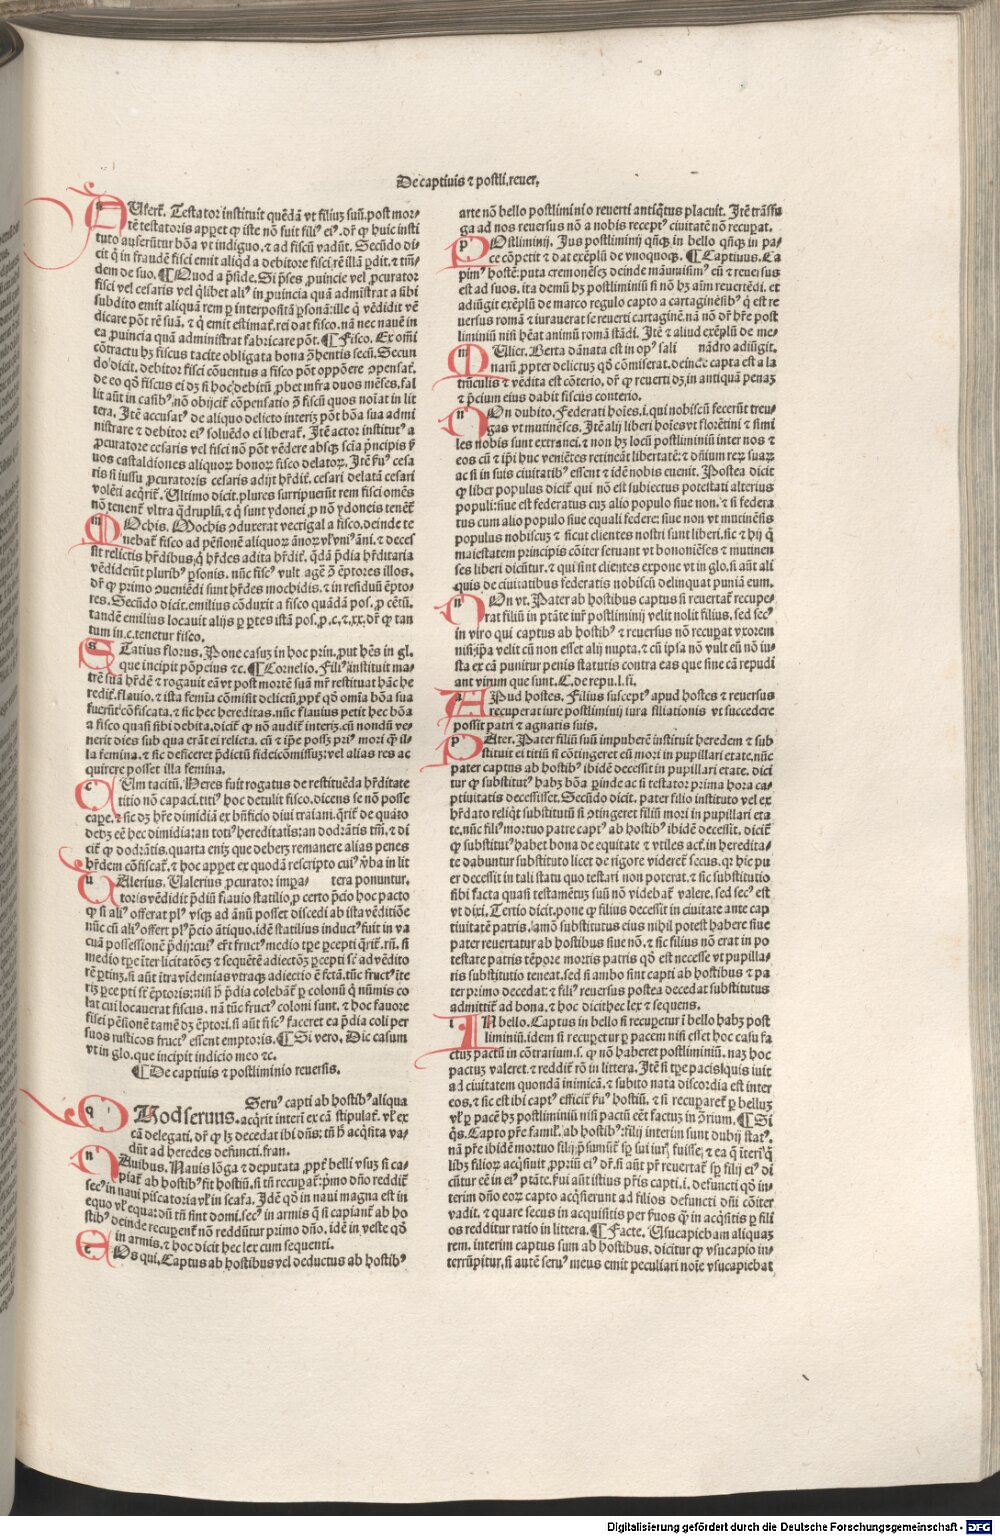 De captiuis ⁊ postli. reuer.
AUfert̃. Testator instituit quẽdã vt filiuʒ suũ. post mor-
tẽ testatoris appet ꝙ iste nõ fuit filiꝰ eiꝰ. dr̃ ꝙ huic insti
tuto auferũtur bõa vt indiguo. ⁊ ad fiscũ vadũt. Secũdo di-
cit ꝙ in fraudẽ fisci emit aliqd a debitore fisci rẽ illã ꝑdit. ⁊ tm̃-
dem de suo. ¶ Quod a p̃side. Si p̃ses ꝓuincie vel ꝓcurator
fisci vel cesaris vel ꝗlibet aliꝰ in ꝓuincia quã admĩstrat a sibi
subdito emit aliquam rem ꝑ interpositã ꝑsonã: ille ꝗ vẽdidit vẽ
dicare põt rẽ suã. ⁊ ꝗ emit estimat̃. rei dat fisco. nã nec nauẽ in
ea ꝓuincia quã administrat fabricare põt. ¶ Fisco. Ex om̃i
cõtractu hʒ fiscus tacite obligata bona ꝯhentis secũ. Secun
do dicit. debitor fisci cõuentus a fisco põt oppõere ꝯpensat̃.
de eo qõ fiscus ei dʒ si hoc debitũ ꝓbet infra duos mẽses. fal
lit aũt in casibꝰ. nõ obijcit̃ cõpensatio ꝯ̃ fiscũ quos noiat in lit
tera. Jtẽ accusatꝰ de aliquo delicto interiʒ põt bõa sua admi
nistrare ⁊ debitor eiꝰ soluẽdo ei liberat̃. Jtẽ actor institutꝰ a
ꝓcuratore cesaris vel fisci nõ põt vẽdere absqʒ scia p̃ncipis ṽ
uos castaldiones aliquoꝝ bonoꝝ fisco delatoꝝ. Jtẽ ẽuꝰ cesa
ris si iussu ꝓcuratoris cesaris adijt hr̃dit̃. cesari delatã cesari
volẽti acqrit̃. Ultimo dicit. plures surripuerũt rem fisci omẽs
nõ tenent̃ vltra qdruplũ. ⁊ ꝗ sunt ydonei ꝓ nõ ydoneis tenẽt̃
MOchis. Mochis ꝯduxerat vectigal a fisco. deinde te
nebat̃ fisco ad pẽsionẽ aliquoꝝ ãnoꝝ vl̃ vniꝰ ãni. ⁊ deces
sit relictis hr̃dibus. ꝗ hr̃des adita hr̃dit̃. qdã p̃dia hr̃ditaria
vẽdiderũt pluribꝰ ꝑsonis. nũc fiscꝰ vult agẽ ꝯ̃ ẽptores illos.
dr̃ ꝙ primo ꝯueniẽdi sunt hr̃des mochidis. ⁊ in residuũ ẽpto-
res. Secũdo dicit. emilius cõduxit a fisco quãdã pos. ꝓ cẽtũ.
tandẽ emilius locauit alijs ꝑ ꝑtes istã pos. ꝓ .c. ⁊ .xx. dr̃ ꝙ tan
tum in .c. tenetur fisco.
STatius florus. Pone casuʒ in hoc prin. ꝓut hẽs in gl.
que incipit põpeius ⁊c. ¶ Cornelio. Filiꝰ instituit ma-
trẽ suã hr̃dẽ ⁊ rogauit eã vt post mortẽ suã mr̃ restituat hãc he
redit̃. flauio. ⁊ ista femĩa cõmisit delictũ. ꝓpt̃ qõ omĩa bõa sua
fuerũt cõfiscata. ⁊ sic hec hereditas. nũc flauius petit hec bõa
a fisco quasi sibi debita. dicit̃ ꝙ nõ audit̃ interiʒ. cũ nondũ ve-
nerit dies sub qua erãt ei relicta. cũ ⁊ ip̃e possʒ priꝰ mori ꝙ il-
la femina. ⁊ sic desiceret p̃dictũ fideicõmissuʒ: vel alias res ac
quirere posset illa femina.
CUm tacitũ. Heres fuit rogatus de restituẽda hr̃ditate
titio nõ capaci. titiꝰ hoc detulit fisco. dicens se nõ posse
cape. ⁊ sic dʒ hr̃e dimidiã ex bñficio diui traiani. qrit̃ de quato
debʒ cẽ hec dimidia: an totiꝰ hereditatis: an dodrãtis tm̃. ⁊ di
cit̃ ꝙ dodrãtis. quarta eniʒ que deberʒ remanere alias penes
hr̃dem cõfiscat̃. ⁊ hoc appet ex quodã rescripto cuiꝰ v̾ba in lit
UAlerius. Ualerius ꝓcurator imp̃a- tera ponuntur.
toris vẽdidit p̃diũ flauio statilio. ꝓ certo p̃cio hoc pacto
ꝙ si aliꝰ offerat plꝰ vsqʒ ad ãnũ posset discedi ab ista vẽditiõe
nũc cũ aliꝰ offert plꝰ p̃cio ãtiquo. idẽ statilius inductꝰ fuit in va
cuã possessionẽ p̃dij: cuiꝰ ẽt fructꝰ medio tp̃e ꝑcepti qrit̃. rñ. si
medio tp̃e ĩter licitatõeʒ ⁊ sequẽtẽ adiectõʒ ꝑcepti st̃ ad vẽdito
rẽ ꝑtinʒ. si aũt ĩtra vĩdemias vtraqʒ adiectio ẽ fctã. tũc fructꝰ ĩte
riʒ ꝑcepti st̃ ẽptoris: nisi h̾ p̃dia colebãt̃ ꝑ colonũ ꝗ nũmis co
lat cui locauerat fiscus. nã tũc fructꝰ coloni sunt. ⁊ hoc fauore
fisci pẽsionẽ tamẽ dʒ ẽptori. si aũt fiscꝰ faceret ea p̃dia coli per
suos rusticos fructꝰ essent emptoris. ¶ Si vero. Dic casum
vt in glo. que incipit indicio meo ⁊c.
¶ De captiuis ⁊ postliminio reuersis.
QUod seruus. Seruꝰ capti ab hostibꝰ aliqua
acqrit interi ex cã stipulat̃. vl̃ ex
cã delegati. dr̃ ꝙ lʒ decedat ibi dñs: tñ h̾ acqsita va-
dũt ad heredes defuncti. fran.
NAuibus. Nauis lõga ⁊ deputata ꝓpt̃ belli vsuʒ si ca-
piat̃ ab hostibꝰ fit hostiũ. si tñ recupat̃: p̃mo dño reddit̃
secꝰ in naui piscatoria vl̃ in scafa. Jdẽ qõ in naui magna est in
equo vl̃ equa: dũ tñ sint domi. secꝰ in armis ꝗ si capiant̃ ab ho
stibꝰ deinde recuperent̃ nõ reddũtur primo dño. idẽ in veste qõ
in armis. ⁊ hoc dicit hec lex cum sequenti.
EOs qui. Captus ab hostibus vel deductus ab hostibꝰ
arte nõ bello postliminio reuerti antiqtus placuit. Jtẽ trãsfu
ga ad nos reuersus nõ a nobis receptꝰ ciuitatẽ nõ recupat.
POstliminij. Jus postliminij qñqʒ in bello qñqʒ in pa-
ce cõpetit ⁊ dat exẽplũ de vnoquoqʒ. ¶ Captiuus. Ca
pimꝰ hostẽ: puta cremonẽsez deinde manuisim̃ꝰ eũ ⁊ reuersus
est ad suos. ita demũ hʒ postliminiũ si nõ hʒ aĩm reuertẽdi. et
adiũgit exẽplũ de marco regulo capto a cartaginẽsibꝰ ꝗ est re
uersus romã ⁊ iurauerat se reuerti cartaginẽ. nã nõ dr̃ hr̃e post
liminiũ nisi hẽat animũ romã stãdi. Jtẽ ⁊ aliud exẽplũ de me-
MUlier. Berta dãnata est in opꝰ sali nãdro adiũgit.
narũ ꝓpter delictuʒ qõ cõmiserat. deinde capta est a la
trũculis ⁊ vẽdita est cõterio. dr̃ ꝙ reuerti dʒ. in antiquã penaʒ
⁊ p̃cium eius dabit fiscus conterio.
NOn dubito. Federati hoies. i. qui nobiscũ fecerũt treu-
gas vt mutinẽses. Jtẽ alij liberi hoies vt florẽtini ⁊ simi
les nobis sunt extranei. ⁊ non hʒ locũ postliminiũ inter nos ⁊
eos cũ ⁊ ip̃i huc veniẽtes retineãt libertatẽ: ⁊ dñium reꝝ suaꝝ
ac si in suis ciuitatibꝰ essent ⁊ idẽ nobis euenit. Postea dicit
ꝙ liber populus dicit̃ qui nõ est subiectus potestati alterius
populi: siue est federatus cuʒ alio populo siue non. ⁊ si federa
tus cum alio populo siue equali federe: siue non vt mutinẽsis
populus nobiscuʒ ⁊ sicut clientes nostri sunt liberi. sic ⁊ hij ꝗ
maiestatem principis cõiter seruant vt bononiẽses ⁊ mutinen
ses liberi dicũtur. ⁊ qui sint clientes expone vt in glo. si aũt ali
quis de ciuitatibus federatis nobiscũ delinquat puniã eum.
NOn vt. Pater ab hostibus captus si reuertat̃ recupe-
rat filiũ in ptãte iur̃ postliminij velit nolit filius. sed secꝰ
in viro qui captus ab hostibꝰ ⁊ reuersus nõ recupat vxorem
nisi ip̃a velit cũ non esset alij nupta. ⁊ cũ ipsa nõ vult eũ nõ iu-
sta ex cã punitur penis statutis contra eas que sine cã repudi
ant virum que sunt. C. de repu. l. fi.
APud hostes. Filius susceptꝰ apud hostes ⁊ reuersus
recuperat iure postliminij iura filiationis vt succedere
possit patri ⁊ agnatis suis.
PAter. Pater filiũ suũ impuberẽ instituit heredem ⁊ sub
stituit ei titiũ si cõtingeret eũ mori in pupillari etate. nũc
pater captus ab hostibꝰ ibidẽ decessit in pupillari etate. dici
tur ꝙ substitutꝰ habʒ bõa ꝑinde ac si testator prima hora ca-
ptiuitatis decessisset. Secũdo dicit. pater filio instituto vel ex
hr̃dato reliqt substitutũ si ꝯtingeret filiũ mori in pupillari eta
te. nũc filiꝰ mortuo patre captꝰ ab hostibꝰ ibidẽ decessit. dicit̃
ꝙ substitutꝰ habet bona de equitate ⁊ vtiles act̃. in heredita-
te dabuntur substituto licet de rigore videret̃ secus. qr hic pu
er decessit in tali statu quo testari non poterat. ⁊ sic substitutio
sibi facta quasi testamẽtuʒ suũ nõ videbat̃ valere. sed secꝰ est
vt dixi. Tertio dicit. pone ꝙ filius decessit in ciuitate ante cap
tiuitatẽ patris. iamõ substitutus eius nihil potest habere siue
pater reuertatur ab hostibus siue nõ. ⁊ sic filius nõ erat in po
testate patris tẽpore mortis patris qõ est necesse vt pupilla-
ris substitutio teneat. sed si ambo sint capti ab hostibus ⁊ pa
ter primo decedat: ⁊ filiꝰ reuersus postea decedat substitutus
admittit̃ ad bona. ⁊ hoc dicit hec lex ⁊ sequens.
IN bello. Captus in bello si recupetur ĩ bello habʒ post
liminiũ. idem si recupetur ꝑ pacem nisi esset hoc casu fa
ctuʒ pactũ in cõtrarium. s. ꝙ nõ haberet postliminiũ. naʒ hoc
pactuʒ valeret. ⁊ reddit̃ rõ in littera. Jtẽ si tp̃e pacis quis iuit
ad ciuitatem quondã inimicã. ⁊ subito nata discordia est inter
eos. ⁊ sic est ibi captꝰ efficit̃ ẽuꝰ hostiũ. ⁊ si recuparet̃ ꝑ belluʒ
vl̃ ꝑ pacẽ hʒ postliminiũ nisi pactũ eẽt factuʒ in ꝯ̃rium. ¶ Si
qs. Capto pr̃e famil̃. ab hostibꝰ: filij interim sunt dubij statꝰ.
nã pr̃e ibidẽ mortuo filij p̃sumũt̃ sp̃ sui iurꝭ fuisse. ⁊ ea ꝗ ĩteri ꝗ
libʒ filioꝝ acqsiuit ꝓpriũ eiꝰ dr̃. si aũt pr̃ reuertat̃ sp̃ filij eiꝰ di
cũtur cẽ in eiꝰ ptãte. ẽui aũt istius pr̃is capti. i. defuncti qõ in-
terim dño eoꝝ capto acqsierunt ad filios defuncti dñi cõiter
vadit. ⁊ quare secus in acqsitis per ẽuos ꝙ in acqsitis ꝑ fili
os redditur ratio in littera. ¶ Facte. Usucapiebam aliquaʒ
rem. interim captus sum ab hostibus. dicitur ꝙ vsucapio in-
terrũpitur. si autẽ seruꝰ meus emit peculiari noĩe vsucapiebat
Digitalisierung gefördert durch die Deutsche Forschungsgemeinschaft - DFG